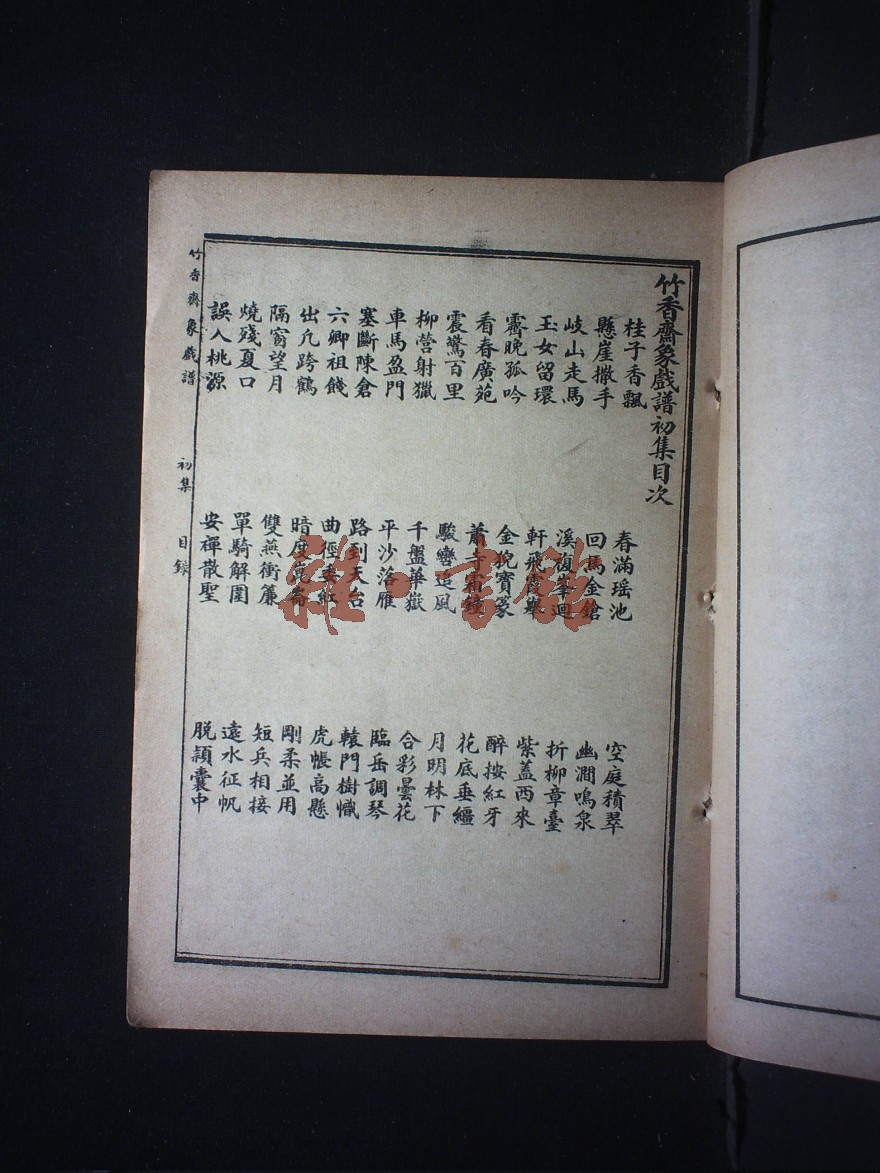 竹香齋象戲譜初集目次
桂子香飄 春滿瑶池 空庭積翠
懸崖撒手 回馬金鎗 幽澗鳴泉
岐山走馬 溪復峯迴 折柳章臺
玉女留環 軒飛霞舉 紫盖西來
霽晚孤吟 金猊寶篆 醉按紅牙
看春廣苑 蕭寺霜鐘 花底垂韁
震驚百里 駿巒追風 月明林下
柳營射獵 千盤華嶽 合彩曇花
車馬盈門 平沙落雁 臨岳調琴
塞斷陳倉 路到天台 轅門樹幟
六卿祖餞 曲徑委紅 虎帳高懸
出凣跨鶴 暗度崑崙 剛柔並用
隔窗望月 雙燕衝簾 短兵相接
燒殘夏口 單騎解圍 遠水征帆
誤入桃源 安禪散聖 脱潁囊中
竹香齋象戲譜 初集 目錄
雜·書館